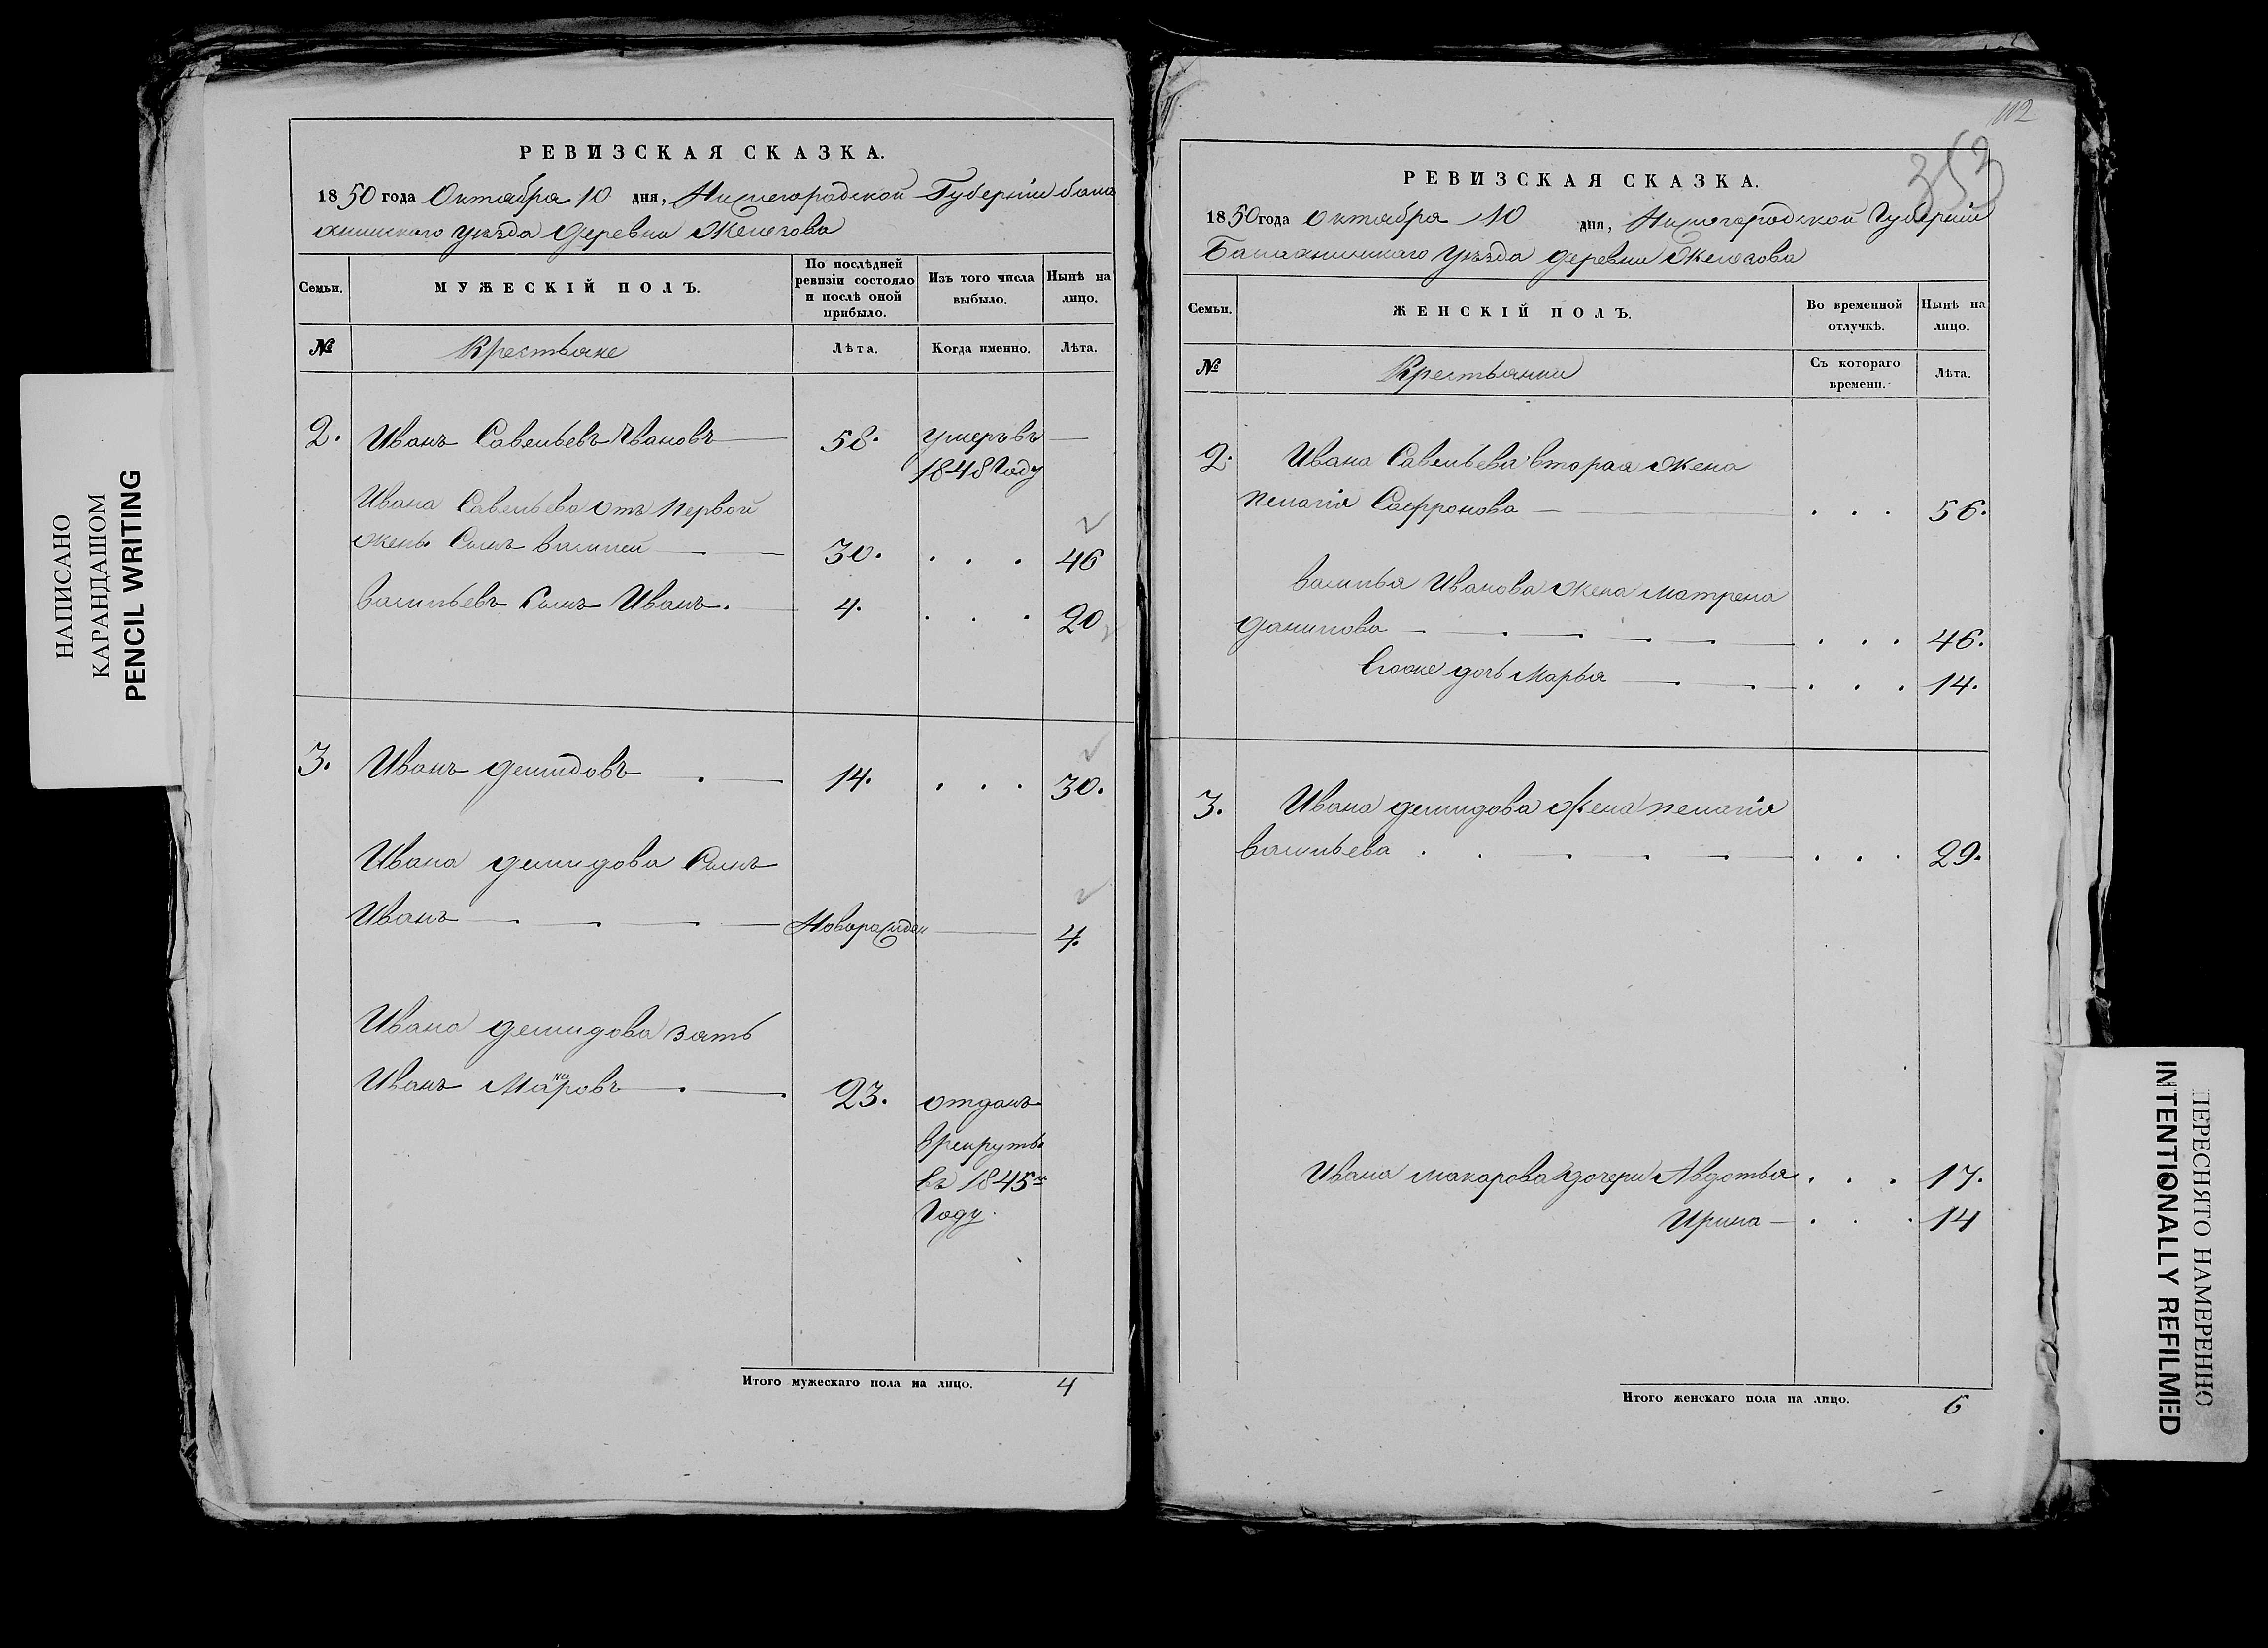 НАПИСАНО
КАРАНДАШОМ
PENCIL WRITING
РЕВИЗСКАЯ СКАЗКА.
1850 года Октября 10 дня, Нижегородской Губернии Бала
хнинского уѣзда деревни
Семьи.
МУЖЕСКІЙ ПОЛЪ.
По послѣдней
ревизіи состояло
и послѣ оной
прибыло.
Изъ того числа
выбыло.
Нынѣ на
лицо.
№
Крестьяне
Лѣта.
Когда именно.
Лѣта.
2. Иванъ Савельевъ Ивановъ 58. умеръ въ
1848 Году
Ивана Савельева отъ первой
жены Сынъ Василей 30. . . . 46
Васильевъ Сынъ Иванъ. 4. . . . 20
3. Иванъ Демидовъ 14. . . . 30.
Ивана Демидова Сынъ
Иванъ Новорожден 4.
Ивана Демидова зять
Иванъ Макаровъ 23. отданъ
в рекруты
въ 1845м
Году.
Итого мужескаго пола на лицо. 4
112
353
РЕВИЗСКАЯ СКАЗКА.
1850 года Октября 10 дня, Нижегородской Губернии
Балахнинскаго уѣзда деревни
Семьи.
ЖЕНСКІЙ ПОЛЪ.
Во временной
отлучкѣ.
Нынѣ на
лицо.
№
Крестьянки
Съ котораго
времени.
Лѣта.
2. Ивана Савельева вторая жена
Пелагія Сафронова . . . 56.
Василья Иванова жена Матрена
Данилова . . . 46.
Егоже дочь Марья . . . 14.
3. Ивана Демидова жена Пелагія
Васильева . . . 29.
Ивана Макарова дочери Авдотья . . . 17.
Ирина . . . 14
Итого женскаго пола на лицо. 6
ПЕРЕСНЯТО НАМЕРЕННО
INTENTIONALLY REFILMED